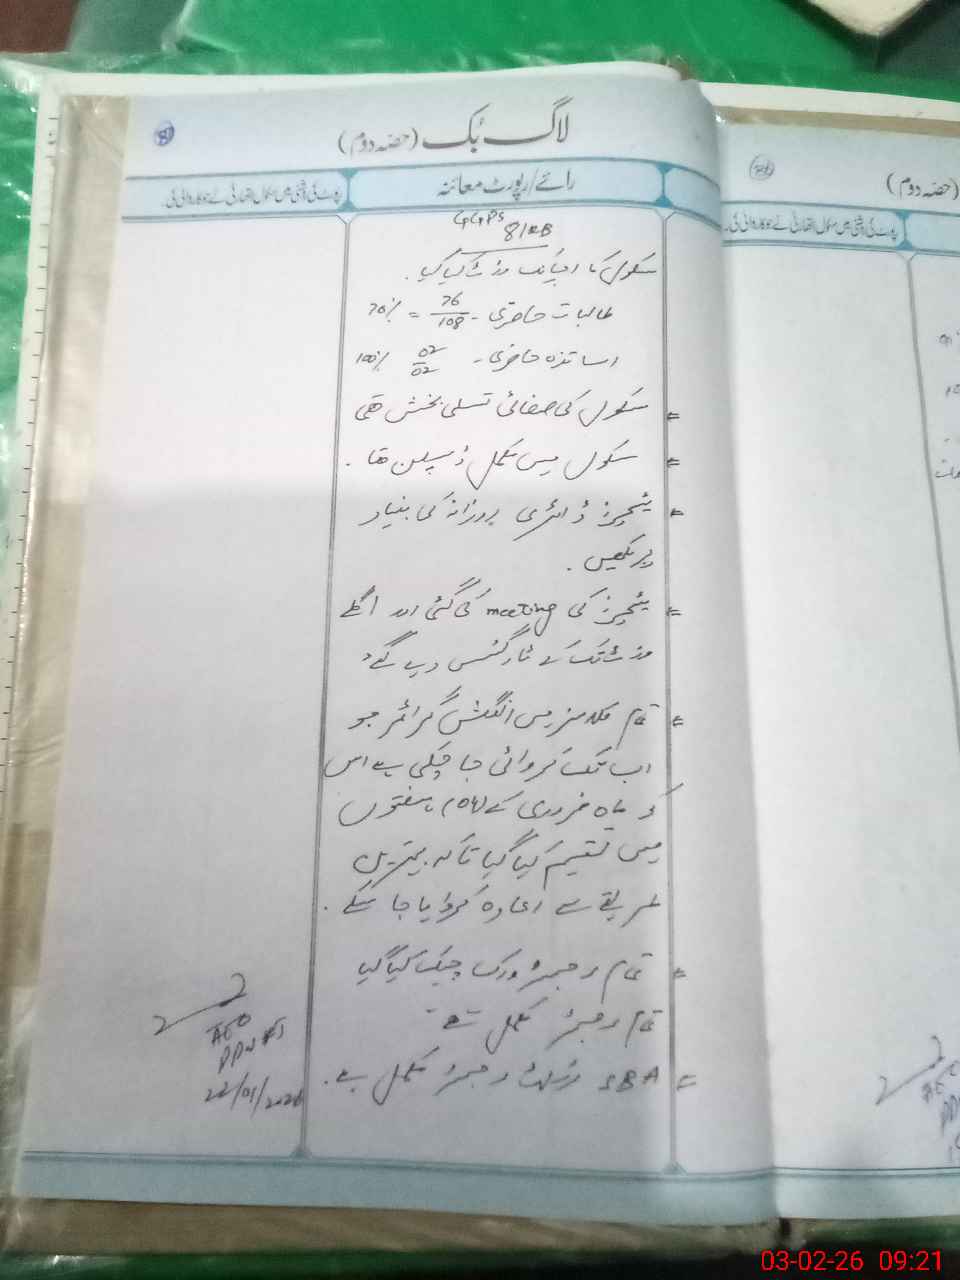 لاگ بُک (حصہ دوم)
81
رائے/رپورٹ معائنہ
رپورٹ کی روشنی میں مسئول اتھارٹی نے جو کاروائی کی
GGPS
سکول کا اچانک وزٹ کیا گیا۔
طالبات حاضری - 76/108 = 70%
اساتذہ حاضری - 02/02 100%
= سکول کی صفائی تسلی بخش تھی
= سکول میں مکمل ڈسپلن تھا ۔
= ٹیچرز ڈائری روزانہ کی بنیاد
پر لکھیں ۔
= ٹیچرز کی meeting کی گئی اور اگلے
وزٹ تک کے ٹارگٹس دیے گئے
= تمام کلاسز میں انگلش گرائمر جو
اب تک کروائی جا چکی ہے اس
کو ماہ فروری کے (04) ہفتوں
میں تقسیم کیا گیا تاکہ بہترین
طریقے سے اعادہ کروایا جا سکے ۔
= تمام رجسٹر ورک چیک کیا گیا
تمام رجسٹر مکمل تھے
= SBA رزلٹ رجسٹر مکمل ہے ۔
AEO
22/01/2026
(حصہ دوم)
رپورٹ کی روشنی میں مسئول اتھارٹی نے جو کاروائی کی۔
03-02-26 09:21